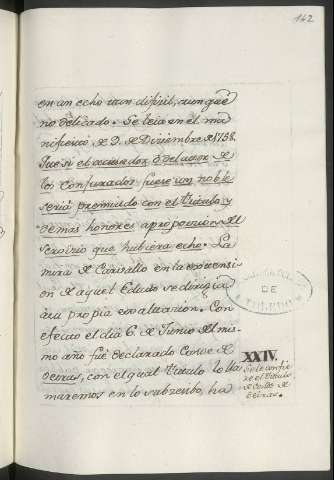 142
en un echo tan dificil, aunque
no delicado. Se leia en el ma
nifiesto de 9. de Diziembre de 1758.
Que si el acusador, o delator de
los conjurados fuese un noble
seria premiado con el Titulo, y
demas honores a proporcion del
servizio que hubiera echo. La
mira de Carvallo en la extensi
on de aquel Edicto se dirigia
a su propia exaltacion. Con
efecto el dia 6. de Junio del mis-
mo año fue declarado Conde de
Oeiras, con el qual Titulo lo lla
maremos en lo subcesibo, ha
XXIV.
Se le confie
re el Titulo
de Conde de
Oeiras.
DE
TOLEDO